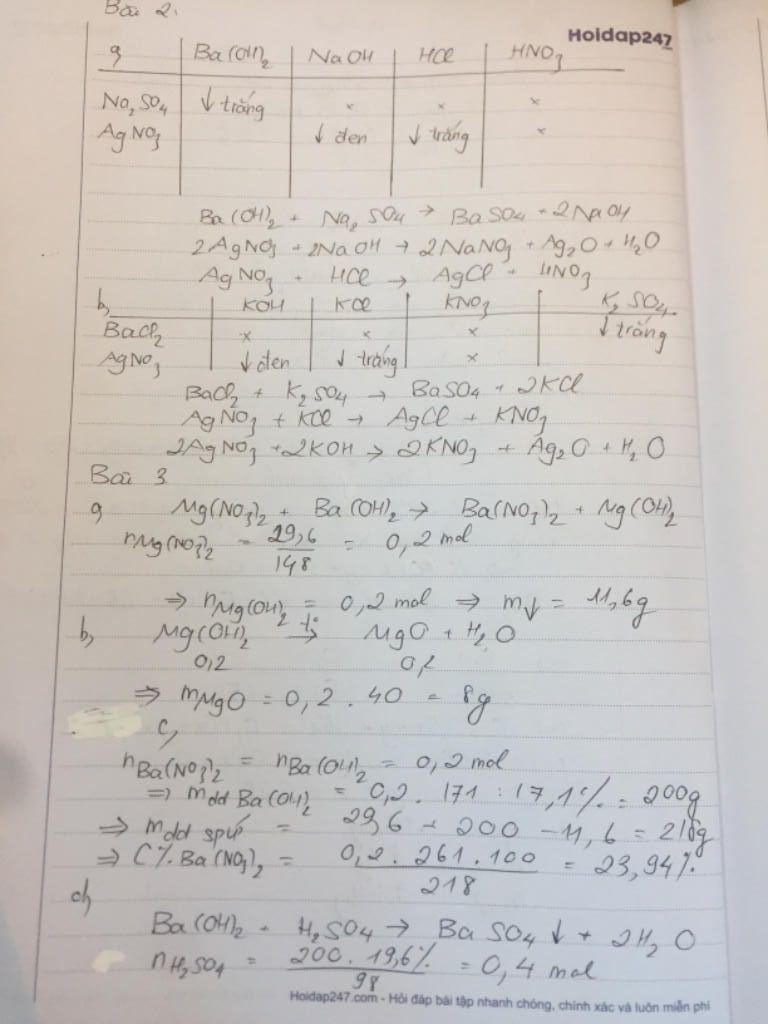 Bài 2:
Hoidap247
a, Ba(OH)₂ NaOH HCl HNO₃
Na₂SO₄ ↓ trắng × × ×
AgNO₃ ↓ đen ↓ trắng ×
Ba(OH)₂ + Na₂SO₄ → BaSO₄ + 2NaOH
2AgNO₃ + 2NaOH → 2NaNO₃ + Ag₂O + H₂O
AgNO₃ + HCl → AgCl + HNO₃
b, KOH KCl KNO₃ K₂SO₄
BaCl₂ × × × ↓ trắng
AgNO₃ ↓ đen ↓ trắng ×
BaCl₂ + K₂SO₄ → BaSO₄ + 2KCl
AgNO₃ + KCl → AgCl + KNO₃
2AgNO₃ + 2KOH → 2KNO₃ + Ag₂O + H₂O
Bài 3
a, Mg(NO₃)₂ + Ba(OH)₂ → Ba(NO₃)₂ + Mg(OH)₂
nMg(NO₃)₂ = 29,6 / 148 = 0,2 mol
⇒ nMg(OH)₂ = 0,2 mol ⇒ m↓ = 11,6g
b, Mg(OH)₂ t°→ MgO + H₂O
0,2 0,2
⇒ mMgO = 0,2 . 40 = 8g
c,
nBa(NO₃)₂ = nBa(OH)₂ = 0,2 mol
⇒ mdd Ba(OH)₂ = 0,2 . 171 : 17,1% = 200g
⇒ mdd spứ = 29,6 + 200 - 11,6 = 218g
⇒ C% Ba(NO₃)₂ = 0,2 . 261 . 100 / 218 = 23,94%
d,
Ba(OH)₂ + H₂SO₄ → BaSO₄ ↓ + 2H₂O
nH₂SO₄ = 200 . 19,6% / 98 = 0,4 mol
Hoidap247.com - Hỏi đáp bài tập nhanh chóng, chính xác và luôn miễn phí